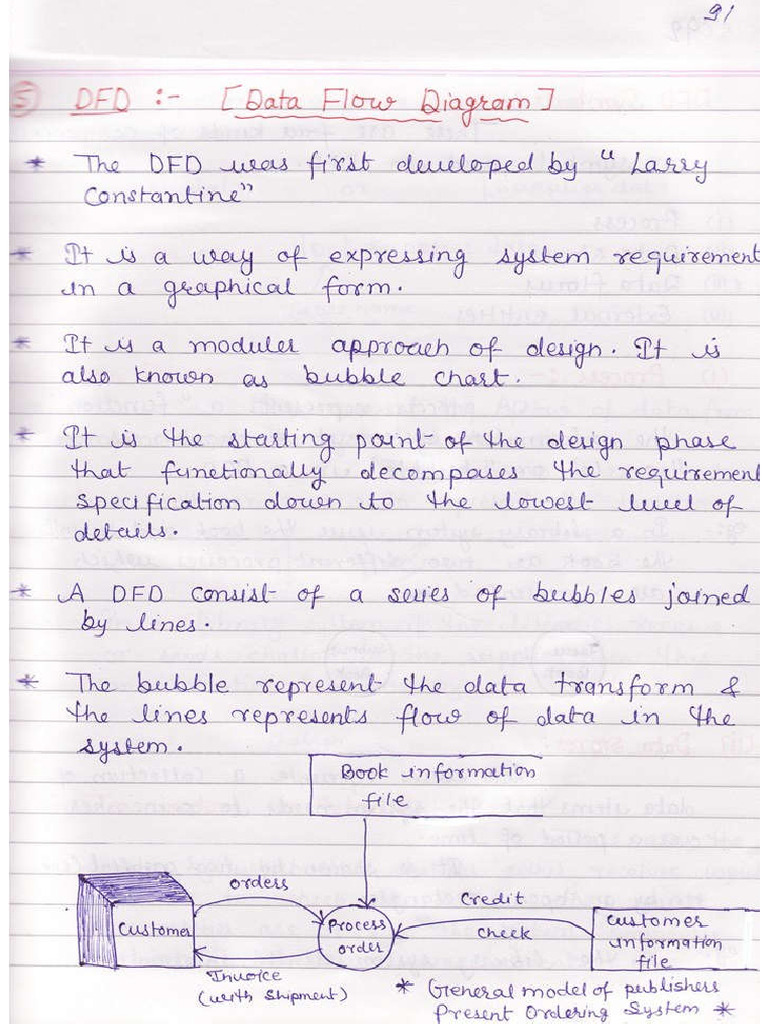 91
5) DFD :- [Data Flow Diagram]
* The DFD was first developed by "Larry
Constantine"
* It is a way of expressing system requirement
in a graphical form.
* It is a moduler approach of design. It is
also known as bubble chart.
* It is the starting point of the design phase
that functionally decomposes the requirement
specification down to the lowest level of
details.
* A DFD consist of a series of bubbles joined
by lines.
* The bubble represent the data transform &
the lines represents flow of data in the
system.
Book information
file
orders
Credit
Customer
Process
order
check
Customer
information
file
Invoice
(with Shipment)
* General model of publishers
Present Ordering System *